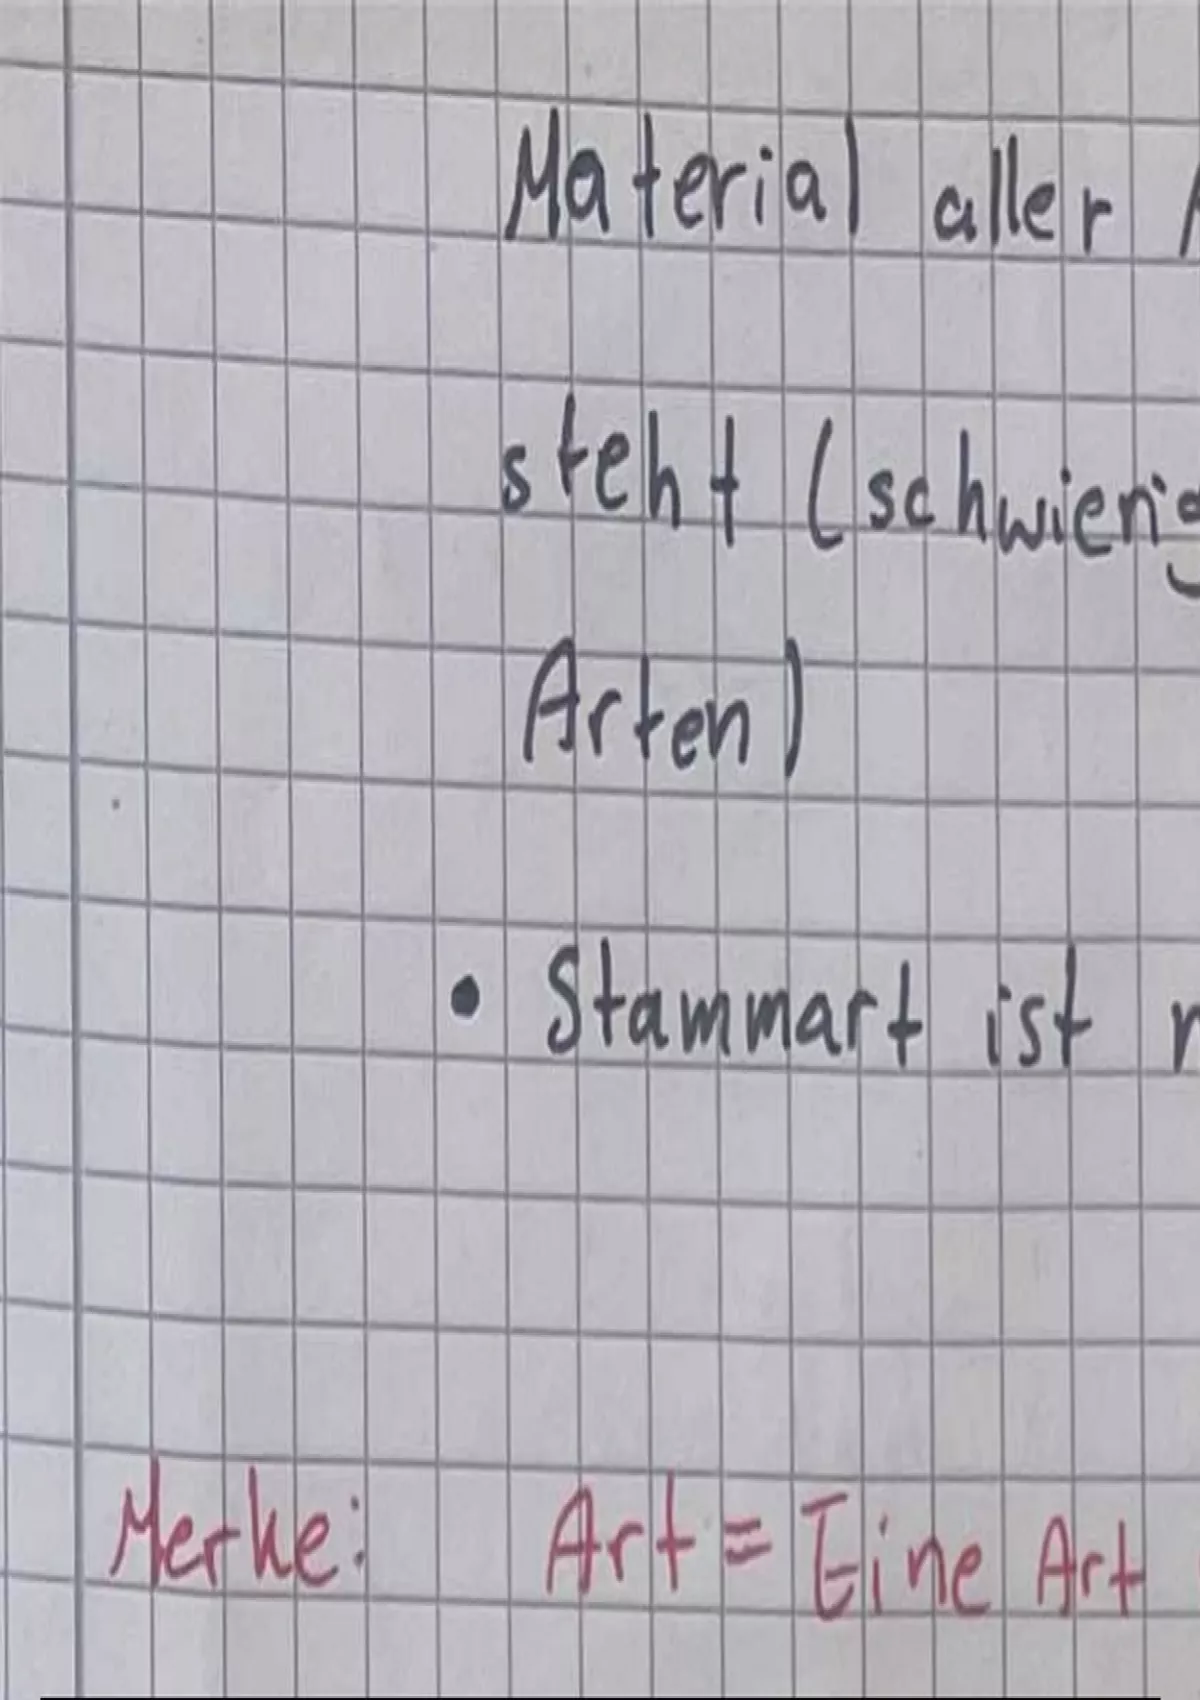 Material aller
steht (schwierig
Arten)
• Stammart ist
Merke: Art = Eine Art